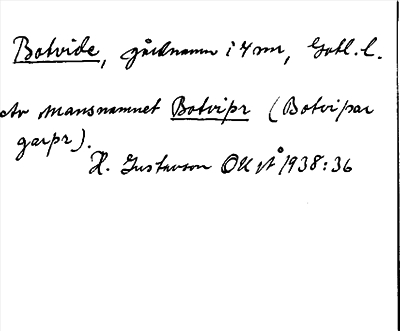 Botvide, gårdnamn i 4 snr, Gotl. l.
Av mansnamnet Botvipr (Botvipar
garpr).
H. Gustavson OUÅ 1938:36